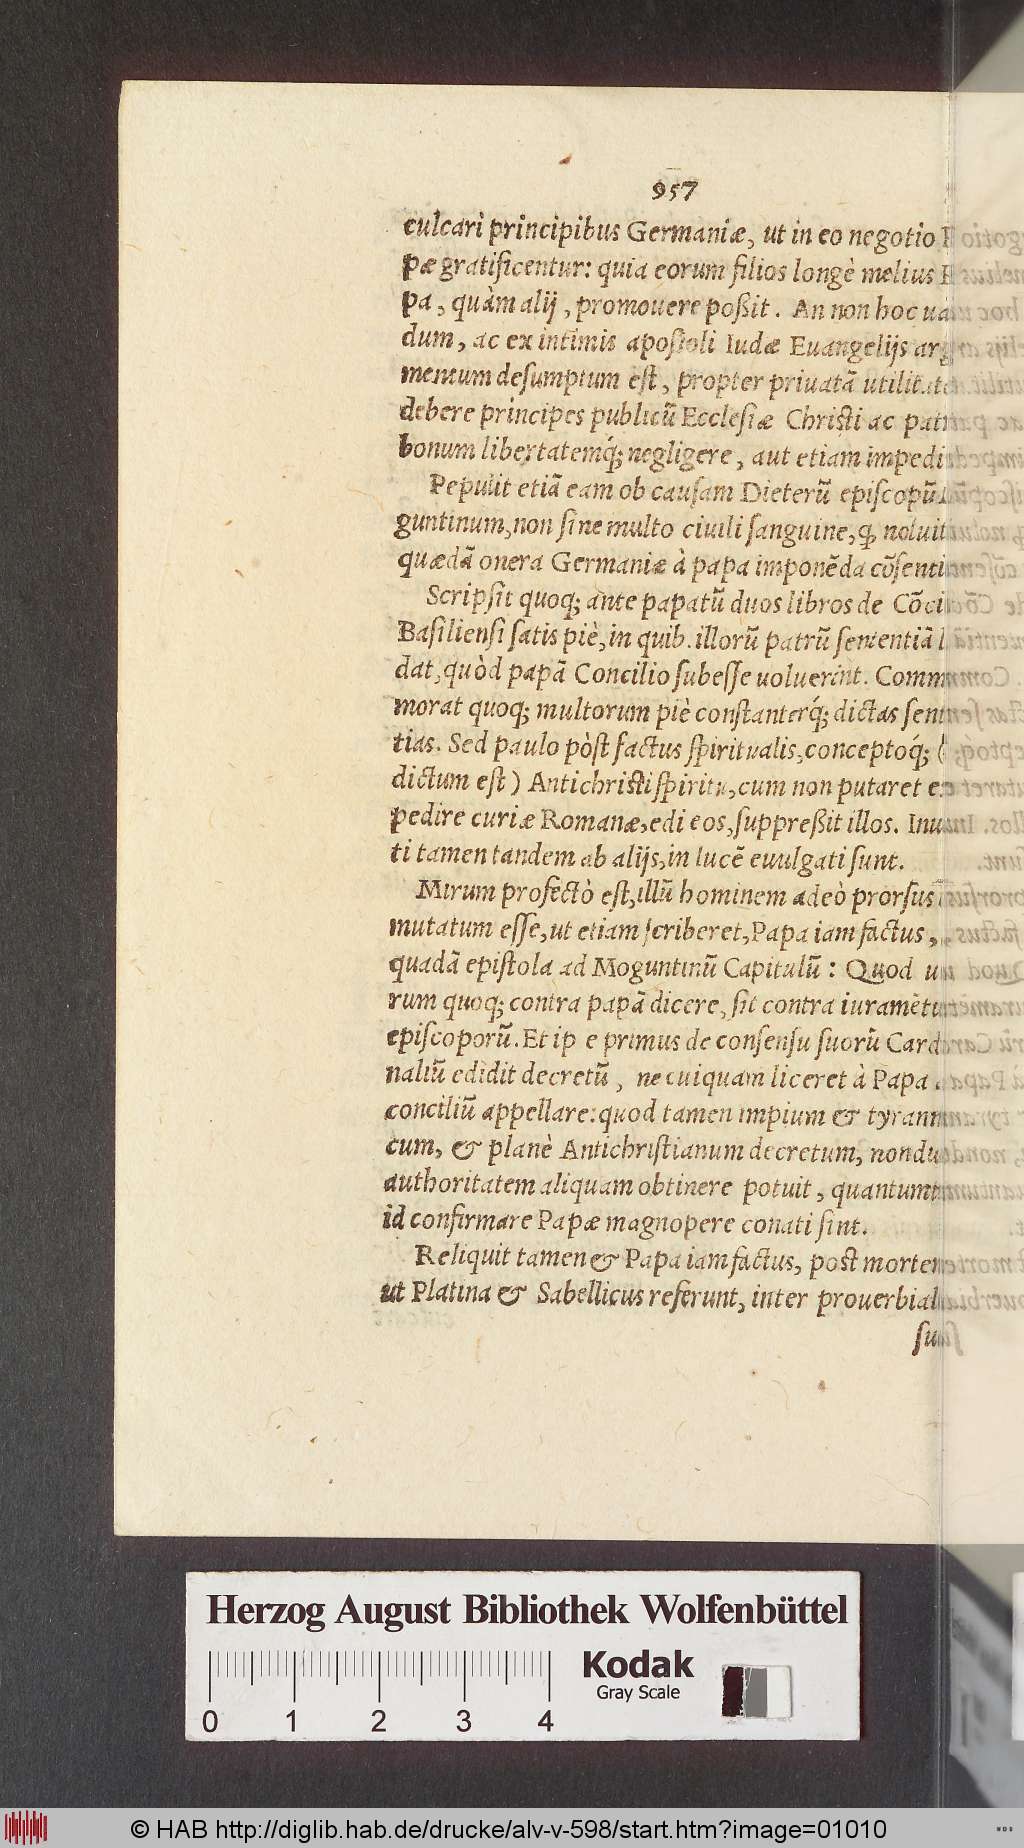 957
culcari principibus Germaniæ, ut in eo negotio
pæ gratificentur: quia eorum filios longè melius
pa, quàm alij, promouere poßit. An non hoc
dum, ac ex intimis apostoli Iudæ Euangelijs arg
mentum desumptum est, propter priuatã utilitatẽ
debere principes publicũ Ecclesiæ Christi ac patr
bonum libertatemq́; negligere, aut etiam impedi
Pepulit etiã eam ob causam Dieterũ episcopũ
guntinum, non sine multo ciuili sanguine, ꝙ noluit
quædã onera Germaniæ à papa imponẽda cõsenti
Scripsit quoq; ante papatũ duos libros de Cõci
Basiliensi satis piè, in quib. illorũ patrũ sententiã l
dat, quòd papã Concilio subesse uoluerint. Comm
morat quoq; multorum piè constanterq́; dictas sen
tias. Sed paulo pòst factus spiritualis, conceptoq́; (
dictum est) Antichristi spiritu, cum non putaret e
pedire curiæ Romanæ, edi eos, suppreßit illos. Inu
ti tamen tandem ab alijs, in lucẽ euulgati sunt.
Mirum profectò est, illũ hominem adeò prorsus
mutatum esse, ut etiam scriberet, Papa iam factus,
quadã epistola ad Moguntinũ Capitulũ: Quod u
rum quoq; contra papã dicere, sit contra iuramẽtu
episcoporũ. Et ip e primus de consensu suorũ Card
naliũ edidit decretũ, ne cuiquam liceret à Papa
conciliũ appellare: quod tamen impium & tyranni
cum, & planè Antichristianum decretum, nondu
authoritatem aliquam obtinere potuit, quantum
id confirmare Papæ magnopere conati sint.
Reliquit tamen & Papa iam factus, post mortem
ut Platina & Sabellicus referunt, inter prouerbial
su
Herzog August Bibliothek Wolfenbüttel
Kodak
Gray Scale
0 1 2 3 4
© HAB http://diglib.hab.de/drucke/alv-v-598/start.htm?image=01010